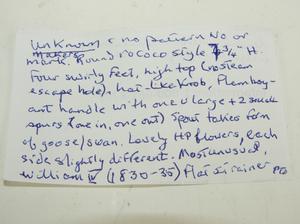 Unknown & no pattern No or
makers
mark. Round rococo style 7¾" H.
Four swirly feet, high top (no steam
escape hole). hat-like knob, Flamboy-
ant handle with one large + 2 small
spurs (one in, one out) Spout takes form
of goose/swan. Lovely HP flowers, each
side slightly different. Most unusual,
William IV (1830-35) Flat strainer